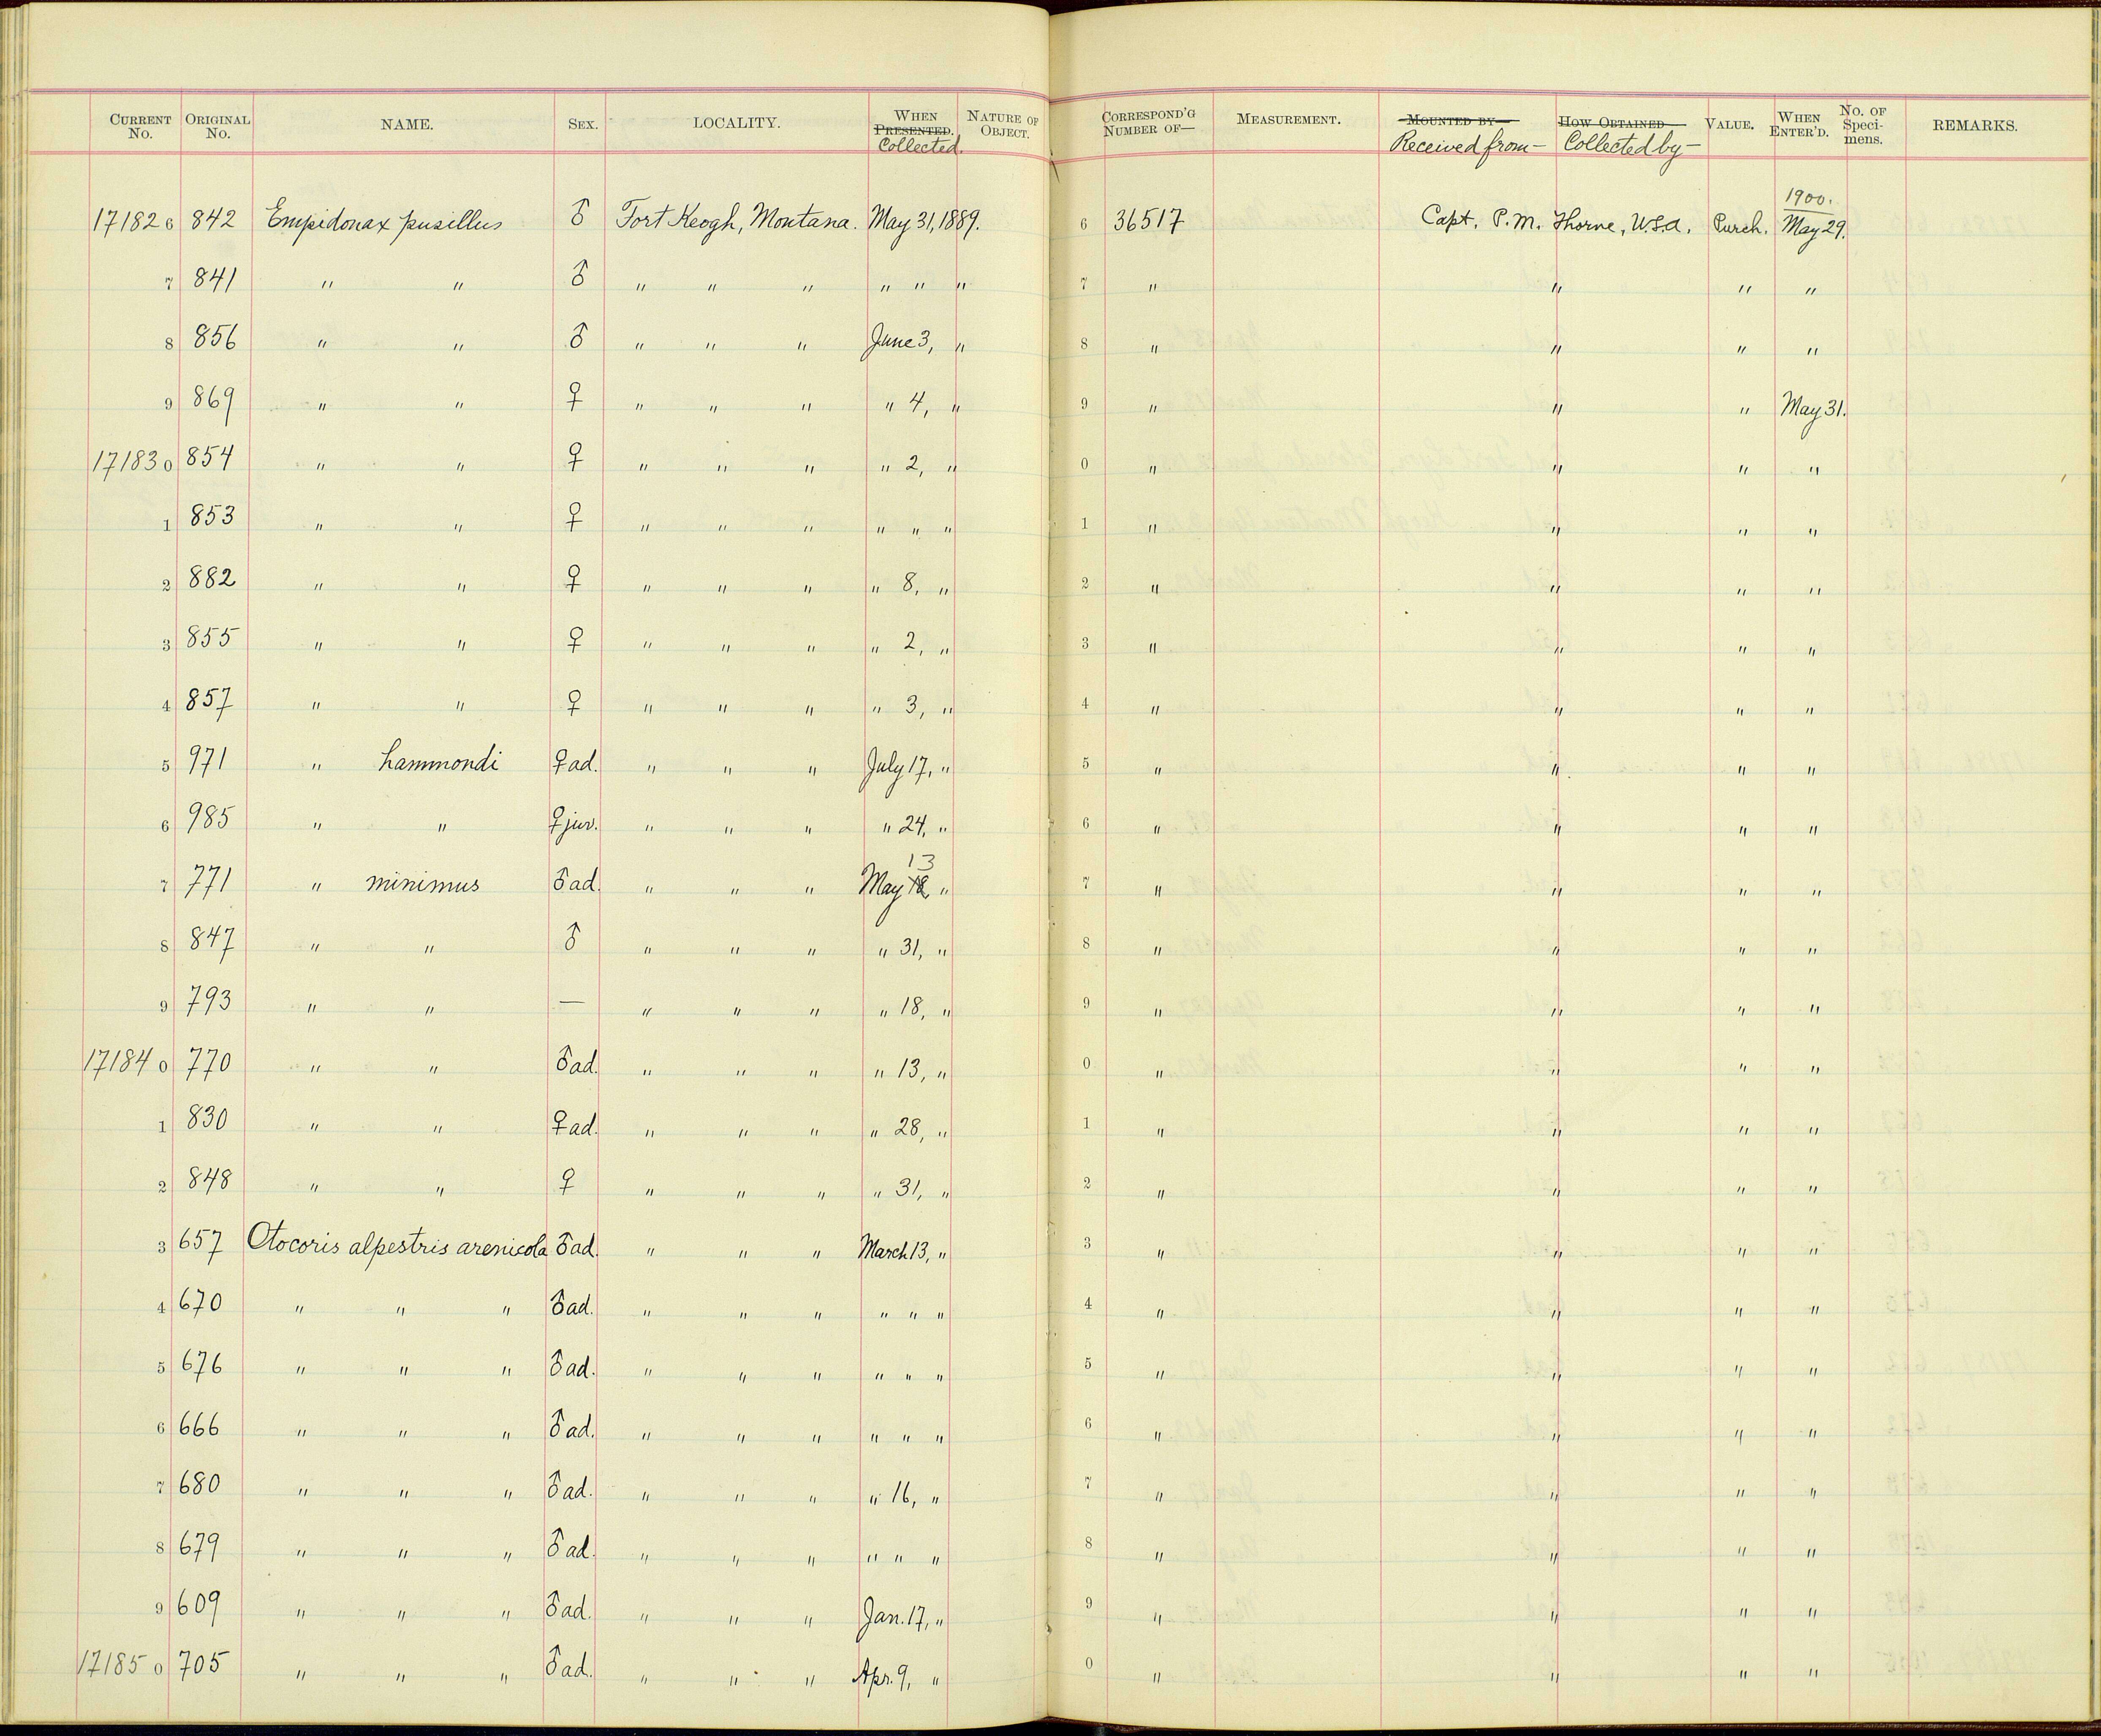 CURRENT No. ORIGINAL No. NAME. SEX. LOCALITY. WHEN PRESENTED. Collected. NATURE OF OBJECT. CORRESPOND'G NUMBER OF— MEASUREMENT. MOUNTED BY— Received from— HOW OBTAINED Collected by— VALUE. WHEN ENTER'D. No. OF Speci-mens. REMARKS.
17182 6 842 Empidonax pusillus ♂ Fort Keogh, Montana. May 31, 1889. 6 36517 Capt. P. M. Thorne, U.S.A. Purch. 1900. May 29.
7 841 " " ♂ " " " " " " 7 " " " "
8 856 " " ♂ " " " June 3, " 8 " " " "
9 869 " " ♀ " " " " 4, " 9 " " " May 31.
17183 0 854 " " ♀ " " " " 2, " 0 " " " "
1 853 " " ♀ " " " " " " 1 " " " "
2 882 " " ♀ " " " " 8, " 2 " " " "
3 855 " " ♀ " " " " 2, " 3 " " " "
4 857 " " ♀ " " " " 3, " 4 " " " "
5 971 " hammondi ♀ ad. " " " July 17, " 5 " " " "
6 985 " " ♀ juv. " " " " 24, " 6 " " " "
7 771 " minimus ♂ ad. " " " May 13 " 7 " " " "
8 847 " " ♂ " " " " 31, " 8 " " " "
9 793 " " — " " " " 18, " 9 " " " "
17184 0 770 " " ♂ ad. " " " " 13, " 0 " " " "
1 830 " " ♀ ad. " " " " 28, " 1 " " " "
2 848 " " ♀ " " " " 31, " 2 " " " "
3 657 Otocoris alpestris arenicola ♂ ad. " " " March 13, " 3 " " " "
4 670 " " " ♂ ad. " " " " " " 4 " " " "
5 676 " " " ♂ ad. " " " " " " 5 " " " "
6 666 " " " ♂ ad. " " " " " " 6 " " " "
7 680 " " " ♂ ad. " " " " 16, " 7 " " " "
8 679 " " " ♂ ad. " " " " " " 8 " " " "
9 609 " " " ♂ ad. " " " Jan. 17, " 9 " " " "
17185 0 705 " " " ♂ ad. " " " Apr. 9, " 0 " " " "